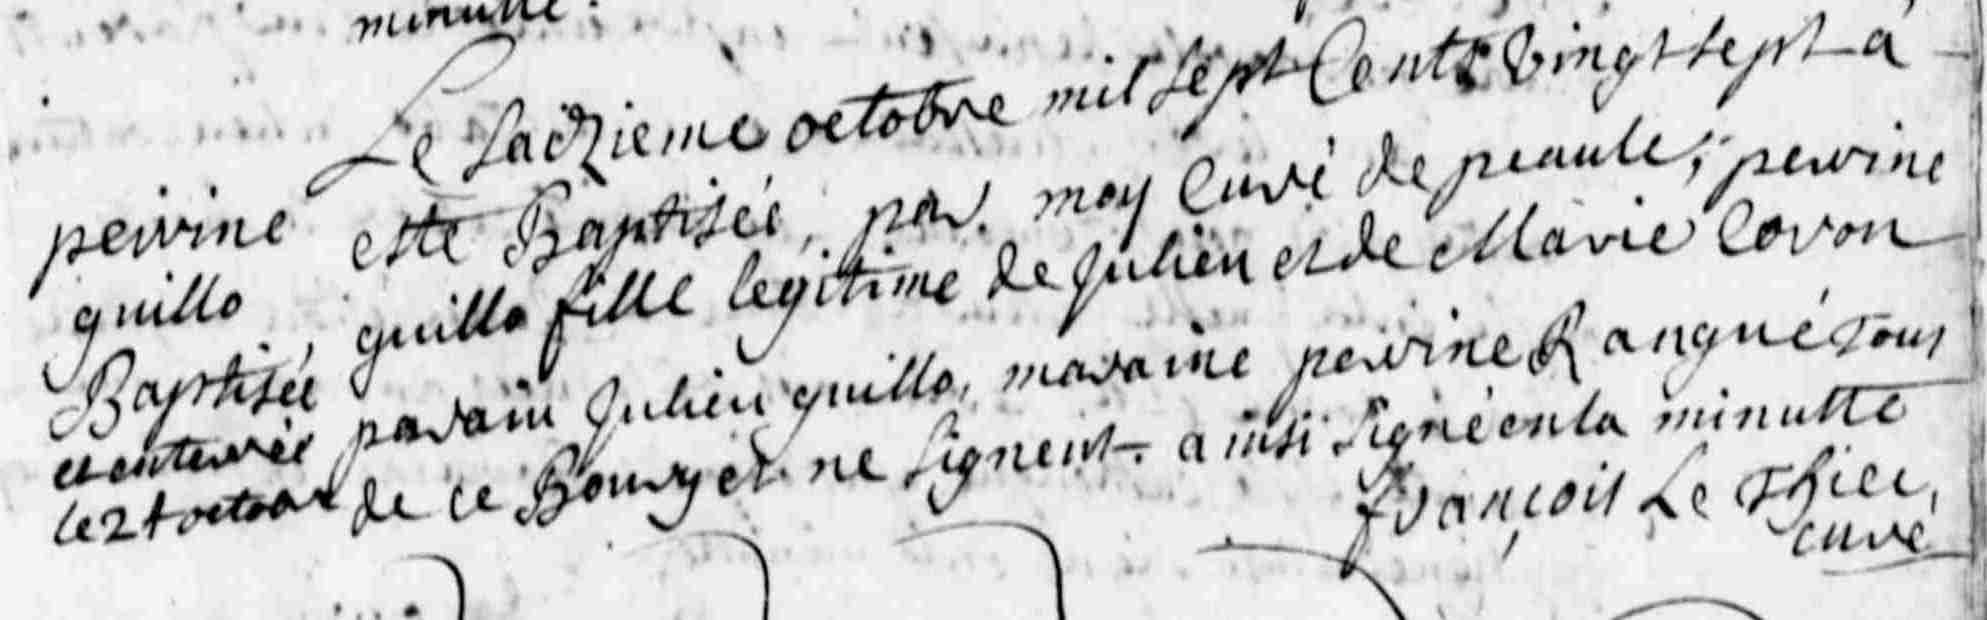 minutte.
Le saizieme octobre mil sept Cents Vingt sept a
esté Baptisée, par moy Curé de peaule, perrine
guillo fille legitime de Julien et de Marie Coron
parain Julien guillo, maraine perrine Rangué Tous
de ce Bourg et ne signent. ainsi signé en la minutte
françois Le Thiec,
curé
perrine
guillo
Baptisée
et enterrée
le 21 octobre